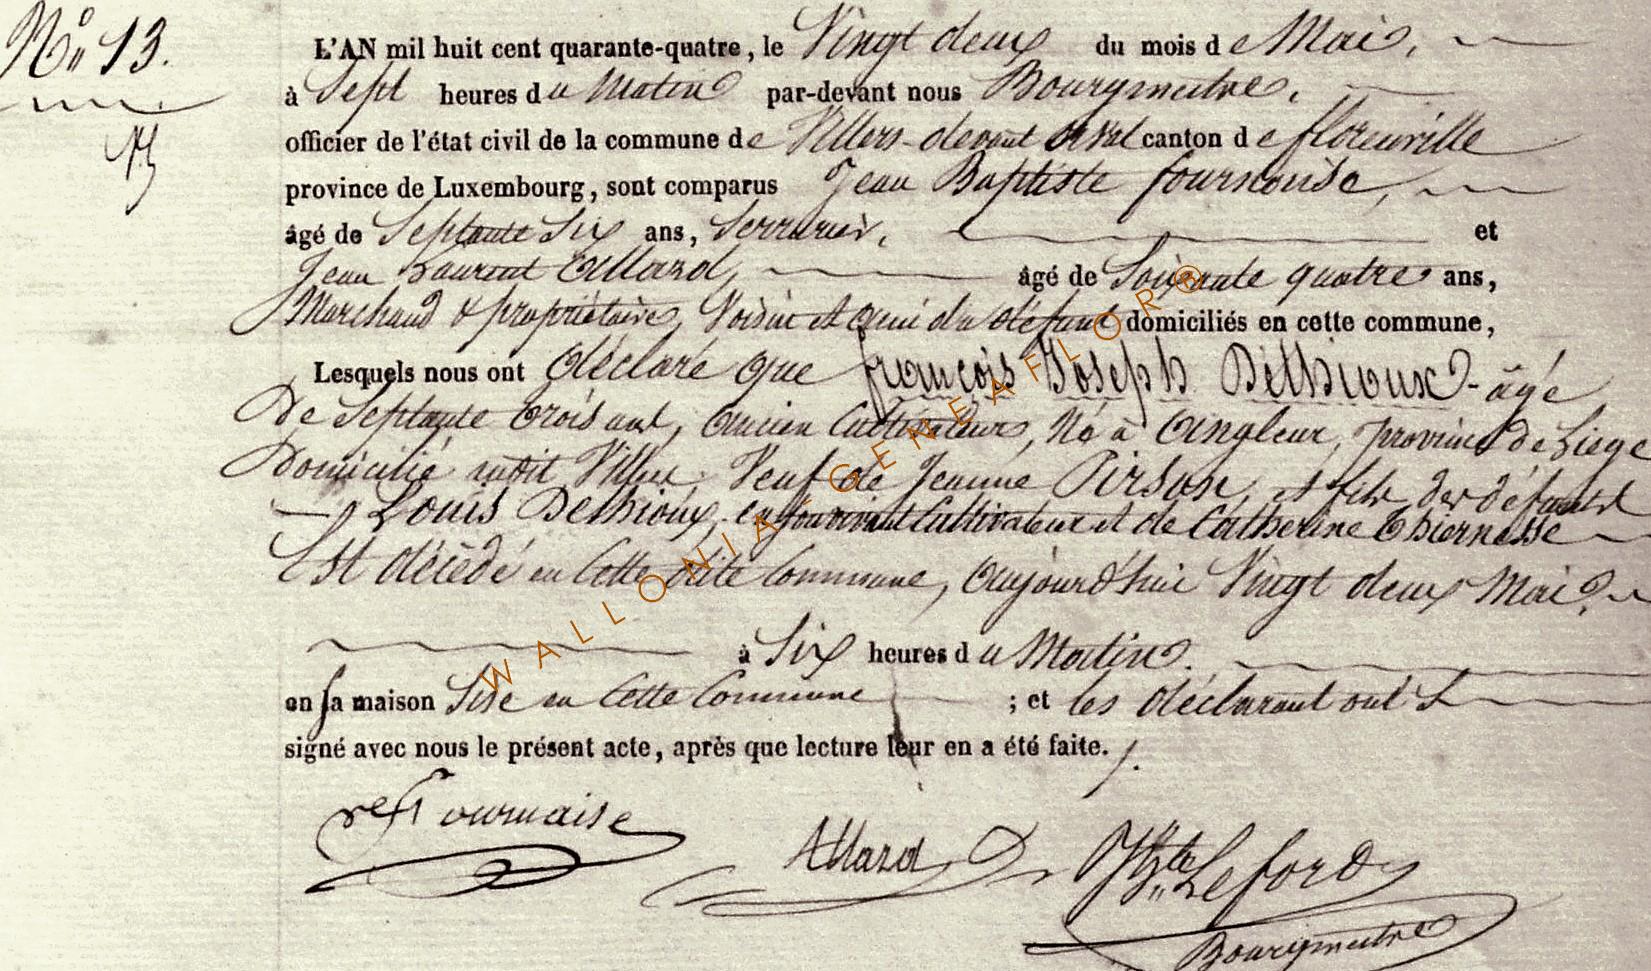 N° 13.
L'AN mil huit cent quarante-quatre, le Vingt deux du mois de Mai,
à Sept heures du Matin par-devant nous Bourgmestre,
officier de l'état civil de la commune de Villers-devant orval canton de florenville
province de Luxembourg, sont comparus Jean Baptiste fournaise,
âgé de Septante Six ans, Serrurier, et
Jean Laurent Allard, âgé de Soixante quatre ans,
Marchand & propriétaire, Voisin et ami du défunt domiciliés en cette commune,
Lesquels nous ont déclaré que françois Joseph Dethioux - âgé
De Septante trois ans, ancien Cultivateur, Né à Angleur, province de Liège
Domicilié audit Villers, Veuf de Jeanne Pirson, et fils des défunts
Louis Dethioux, en son vivant Cultivateur et de Catherine Thiernesse
Est décédé en Cette dite Commune, aujourd'hui Vingt deux Mai,
à Six heures du Matin.
en sa maison Sise en Cette Commune ; et les déclarant ont
signé avec nous le présent acte, après que lecture leur en a été faite.
Fournaise
Allard
Jbte Leford
Bourgmestre
WALLONIA-GENEAFLOR®